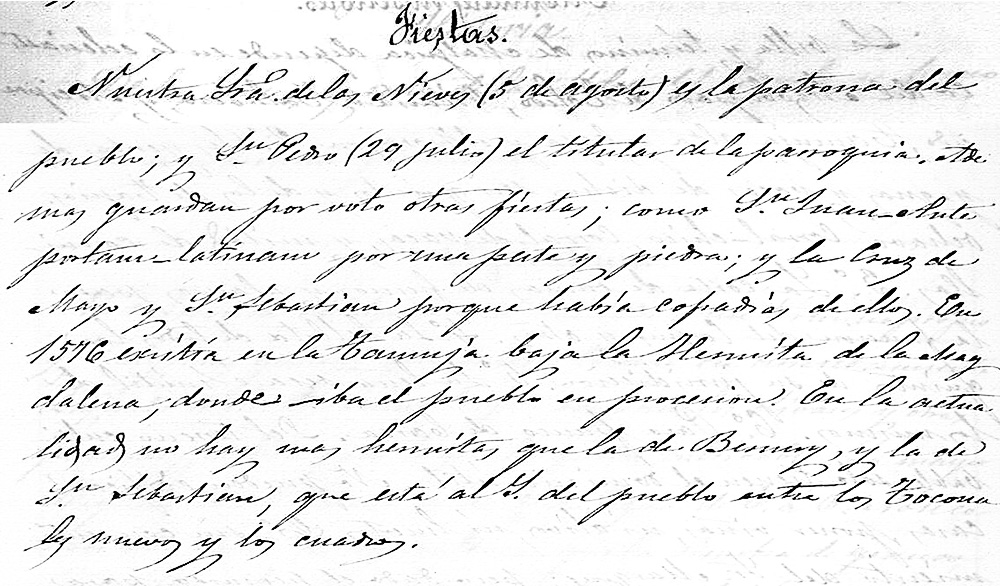 Fiestas.
Nuestra Sra. de las Nieves (5 de agosto) es la patrona del
pueblo; y Sn Pedro (29 julio) el titular de la parroquia. Ade
mas guardan por voto otras fiestas; como Sn Juan-Ante
portam-latinam por una peste y piedra; y la Cruz de
Mayo y Sn Sebastian porque había cofadías de ellos. En
1576 existía en la Tamuja baja la Hermita de la Mag
dalena, donde iba el pueblo en procesion. En la actua
lidad no hay mas hermitas que la de Bernuy, y la de
Sn Sebastian, que está al S. del pueblo entre los Tocona
les nuevos y los cuadros.